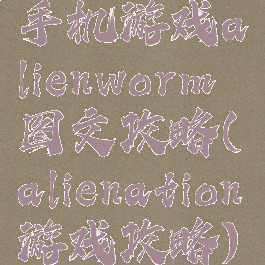 手机游戏a
lienworm
图文攻略(
alienation
游戏攻略)